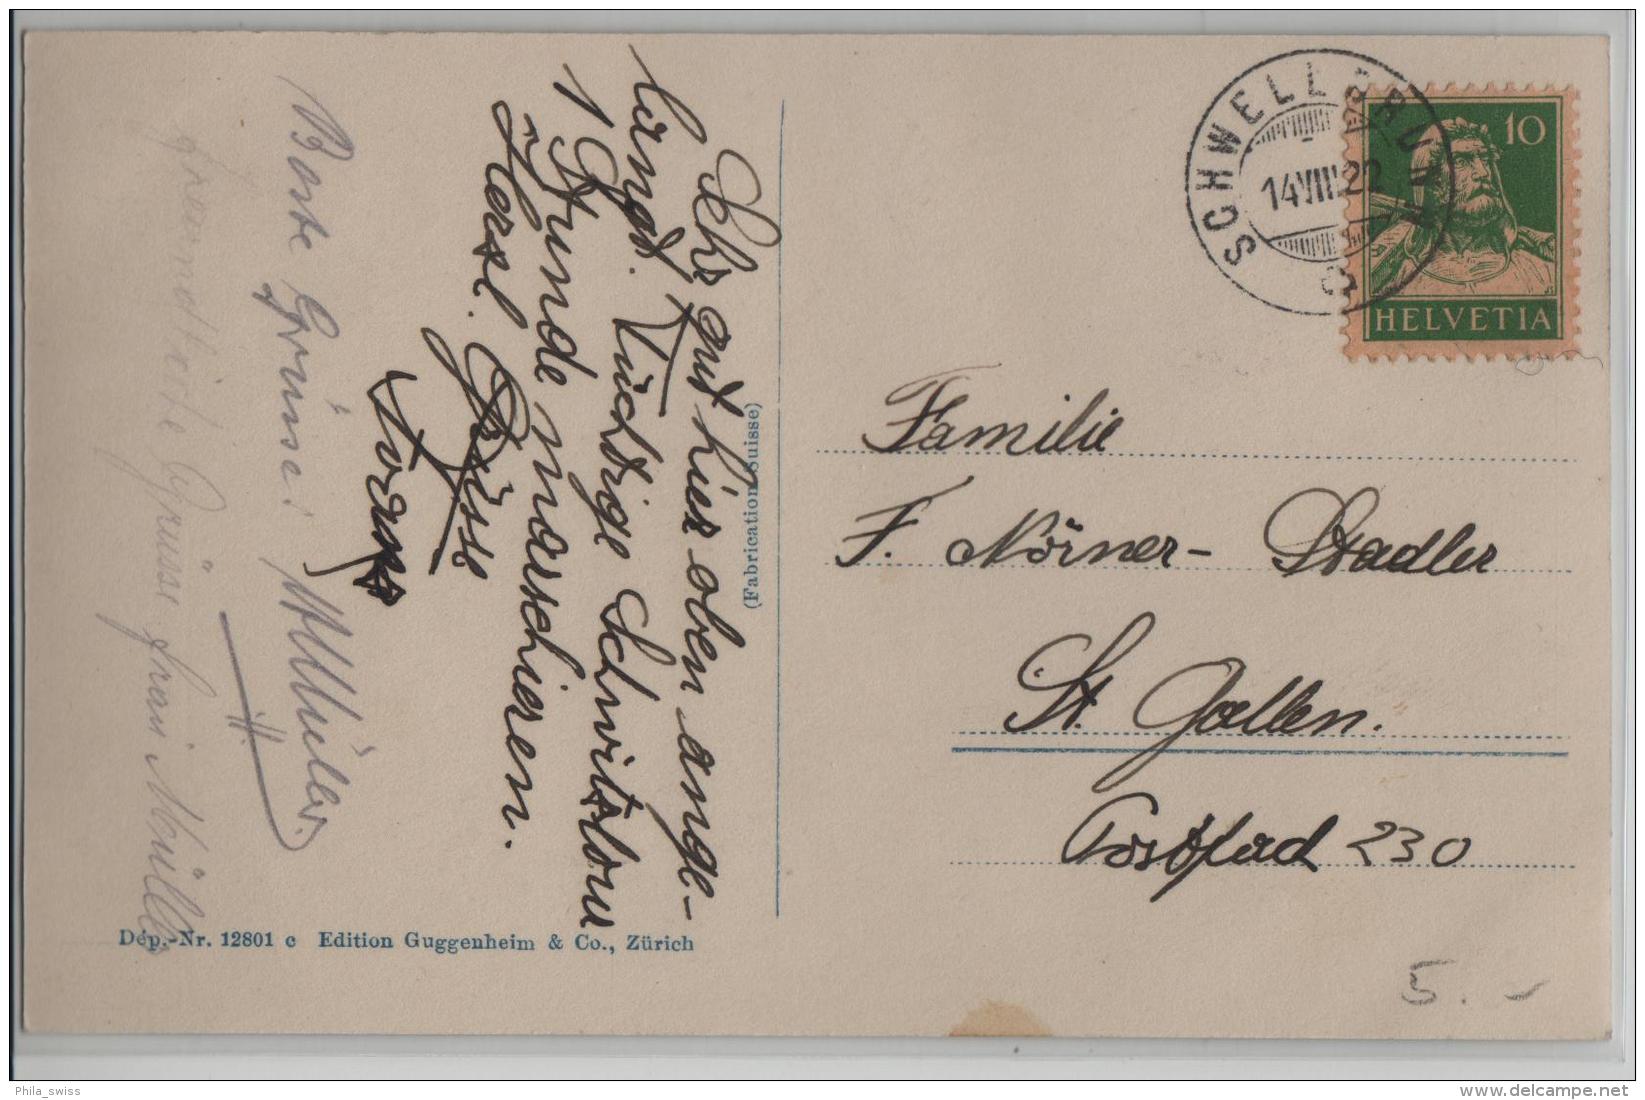 Sehr gut hier oben ange-
langt. Tüchtige Schwitzkur
1 Stunde marschieren.
Herzl. Grüsse
Beste Grüsse! Müller.
Grüsse Frau Müller
(Fabrication Suisse)
Dép.-Nr. 12801 c Edition Guggenheim & Co., Zürich
SCHWELLBRUNN
14 VIII 22
10
HELVETIA
Familie
F. Nörner-Stadler
St. Gallen.
Postfach 230
5.-
Phila_swiss
www.delcampe.net